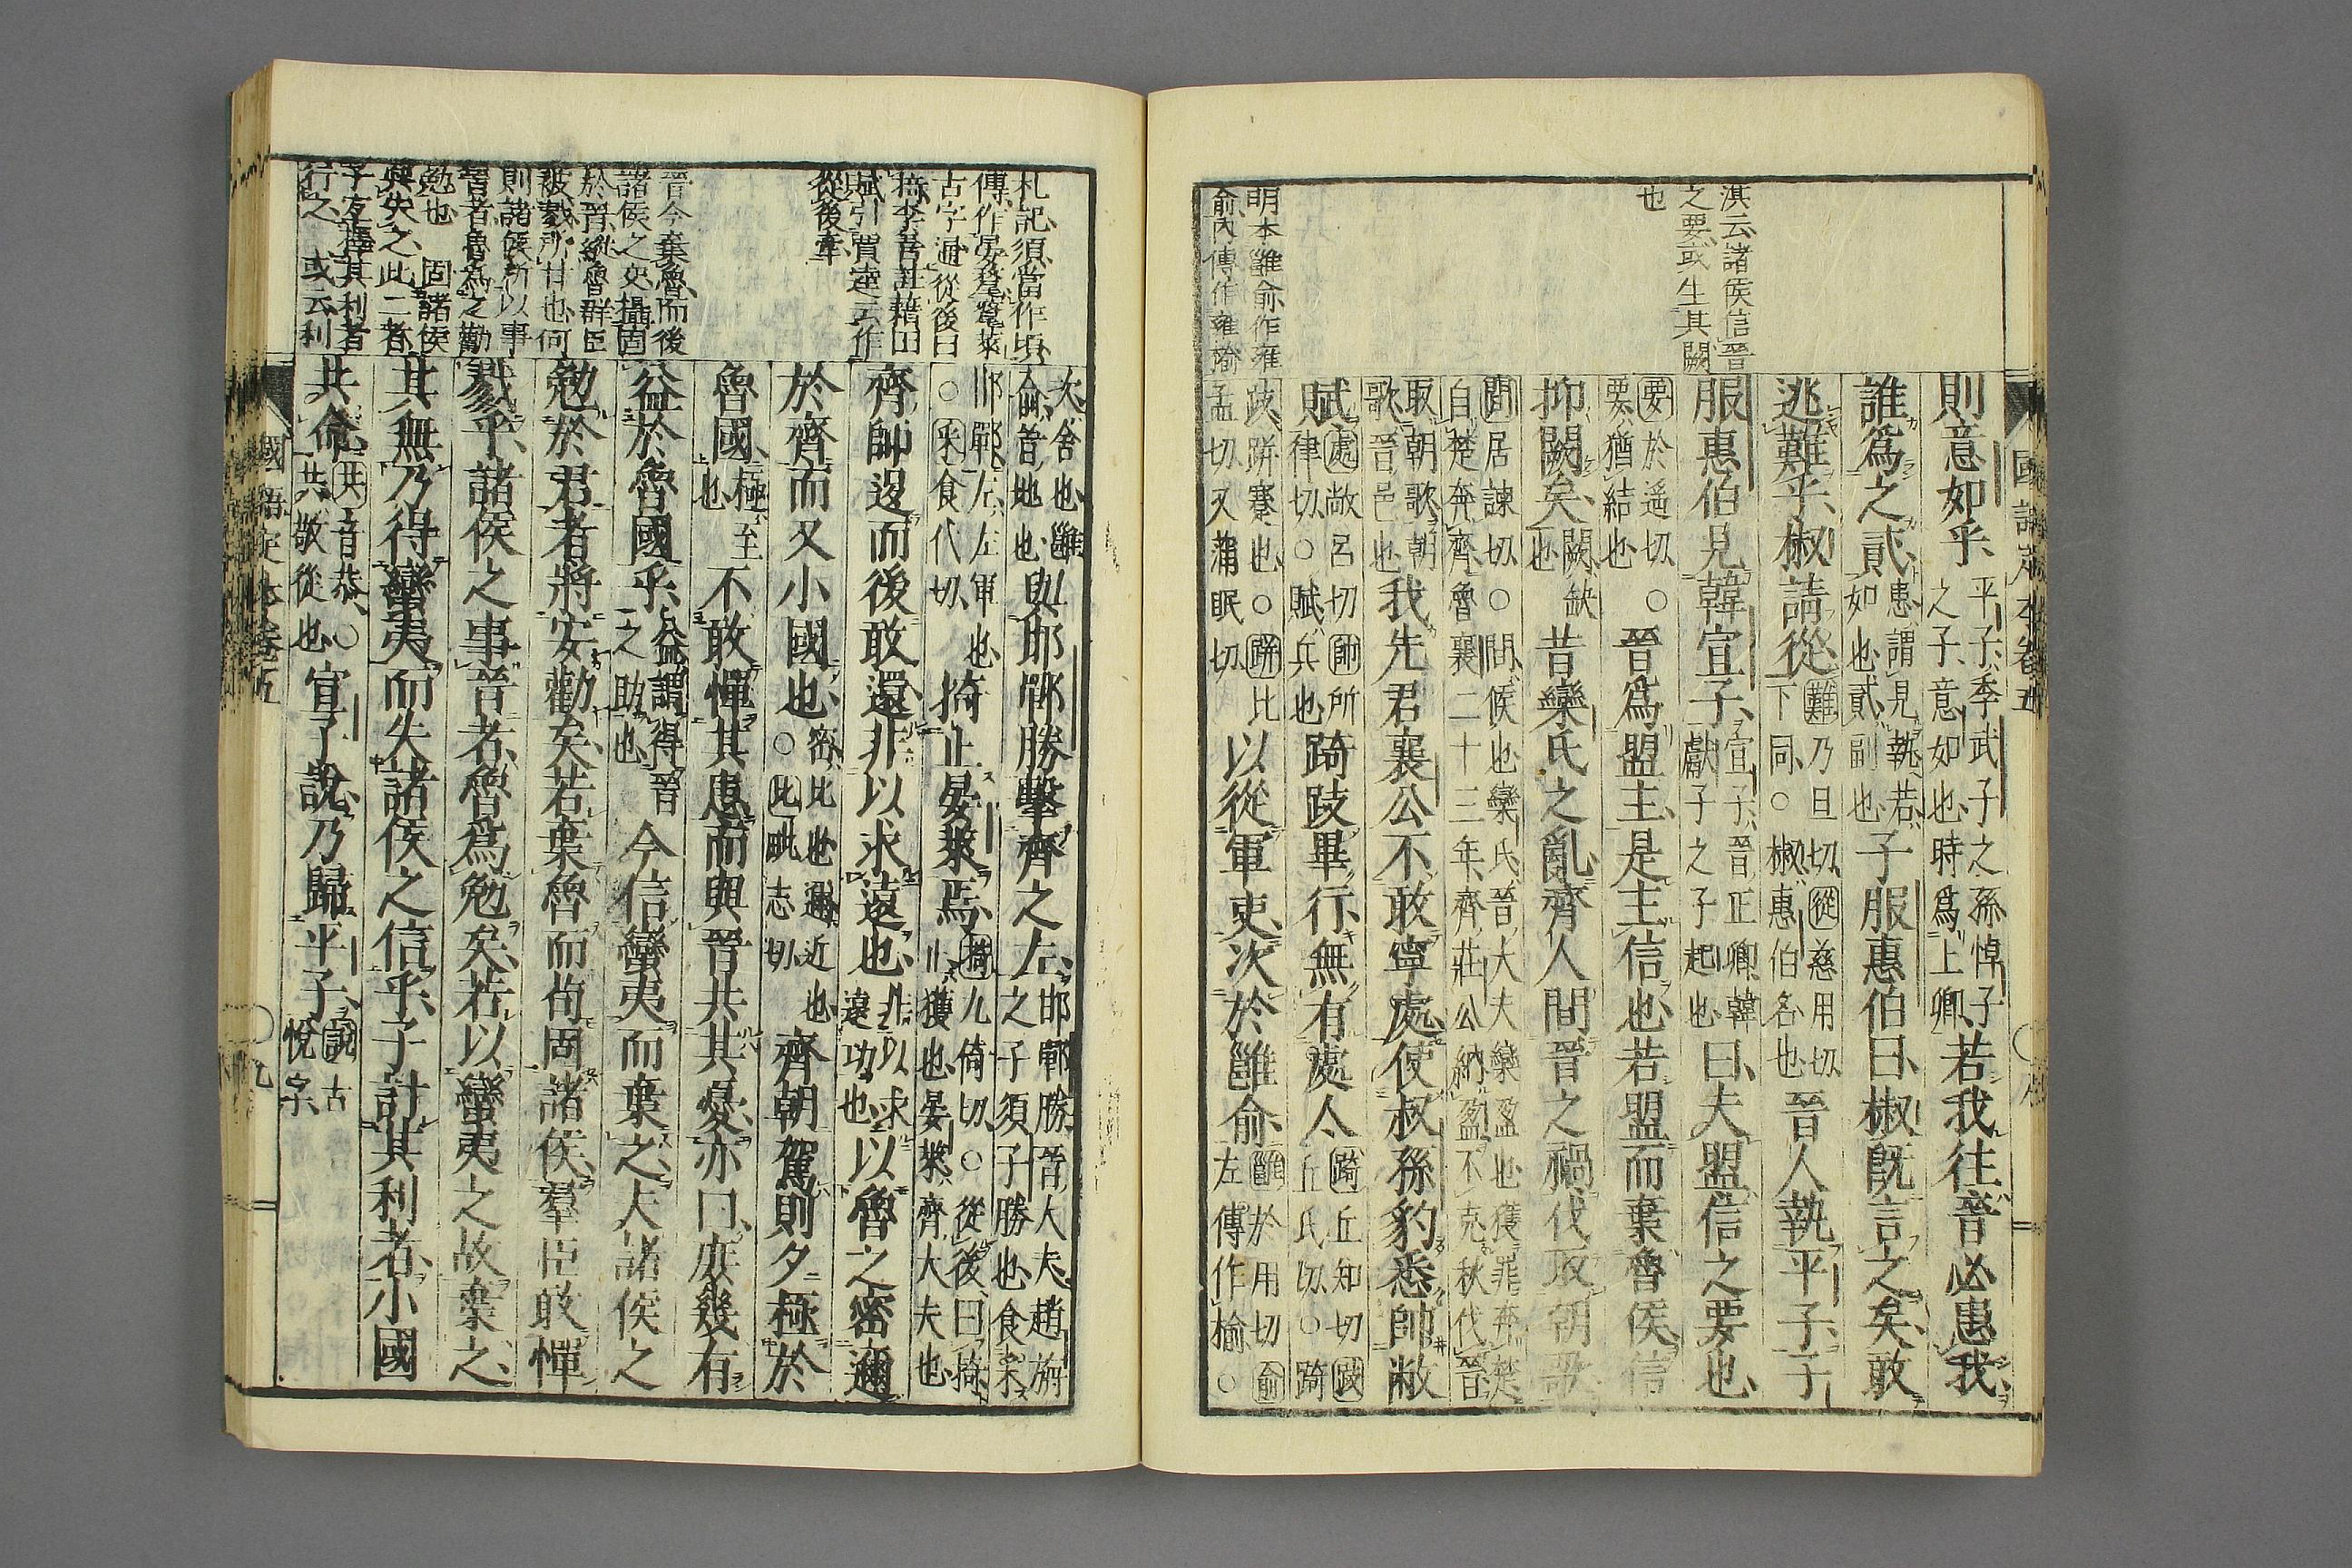 淇云諸侯信晉
之要或生其闕
也
明本雝俞作雍
俞內傳作雍楡
則意如乎平子季武子之孫悼子
之子意如也時爲上卿若我往晉必患我
誰爲之貳患謂見執若
如也貳副也子服惠伯曰椒既言之矣敢
逃難乎椒請從難乃旦切從慈用切
下同○椒惠伯名也晉人執平子子
服惠伯見韓宣子宣子晉正卿韓
獻子之子起也曰夫盟信之要也
要於遥切○
要猶結也晉爲盟主是主信也若盟而棄魯侯信
抑闕矣闕缺
也昔欒氏之亂齊人間晉之禍伐取朝歌
間居諫切○間候也欒氏晉大夫欒盈也獲罪奔楚
自楚奔齊魯襄二十三年齊莊公納盈不克秋伐晉
取朝歌朝
歌晉邑也我先君襄公不敢寧處使叔孫豹悉帥敝
賦處敞呂切帥所
律切○賦兵也踦跂畢行無有處人踦丘知切跂
丘氏切○踦
跂跰蹇也○跰比
孟切又蒲眠切以從軍吏次於雝俞雝於用切俞
左傳作楡○
國語定本卷五
札記須當作頃
傳作晏氂氂萊
古字通從後曰
掎李善註藉田
賦引賈逵云作
從後牽
晉今棄魯而後
諸侯之史攝固
於晉
則諸侯所以事
晉者魯爲之勸
勉也 固諸侯
與失之此二者
子
行之 或云利
次舍也雝
俞晉地也與邯鄲勝擊齊之左邯鄲勝晉大夫趙旃
之子須子勝也食采
邯鄲左左軍也
○采食代切掎止晏萊焉掎几倚切○從後曰掎
止獲也晏萊齊大夫也
齊師退而後敢還非以求遠也非以求
遠功也以魯之密邇
於齊而又小國也密比也邇近也
○比毗志切齊朝駕則夕極於
魯國極至
也不敢憚其患而與晉共其憂亦曰庶幾有
益於魯國乎益謂得晉
之助也今信蠻夷而棄之夫諸侯之
勉於君者將安勸矣若棄魯而苟固諸侯羣臣敢憚
戮乎諸侯之事晉者魯爲勉矣若以蠻夷之故棄之
其無乃得蠻夷而失諸侯之信乎子計其利者小國
共命共音恭○
共敬從也宣子說乃歸平子說古
悅字
國語定本卷五
九